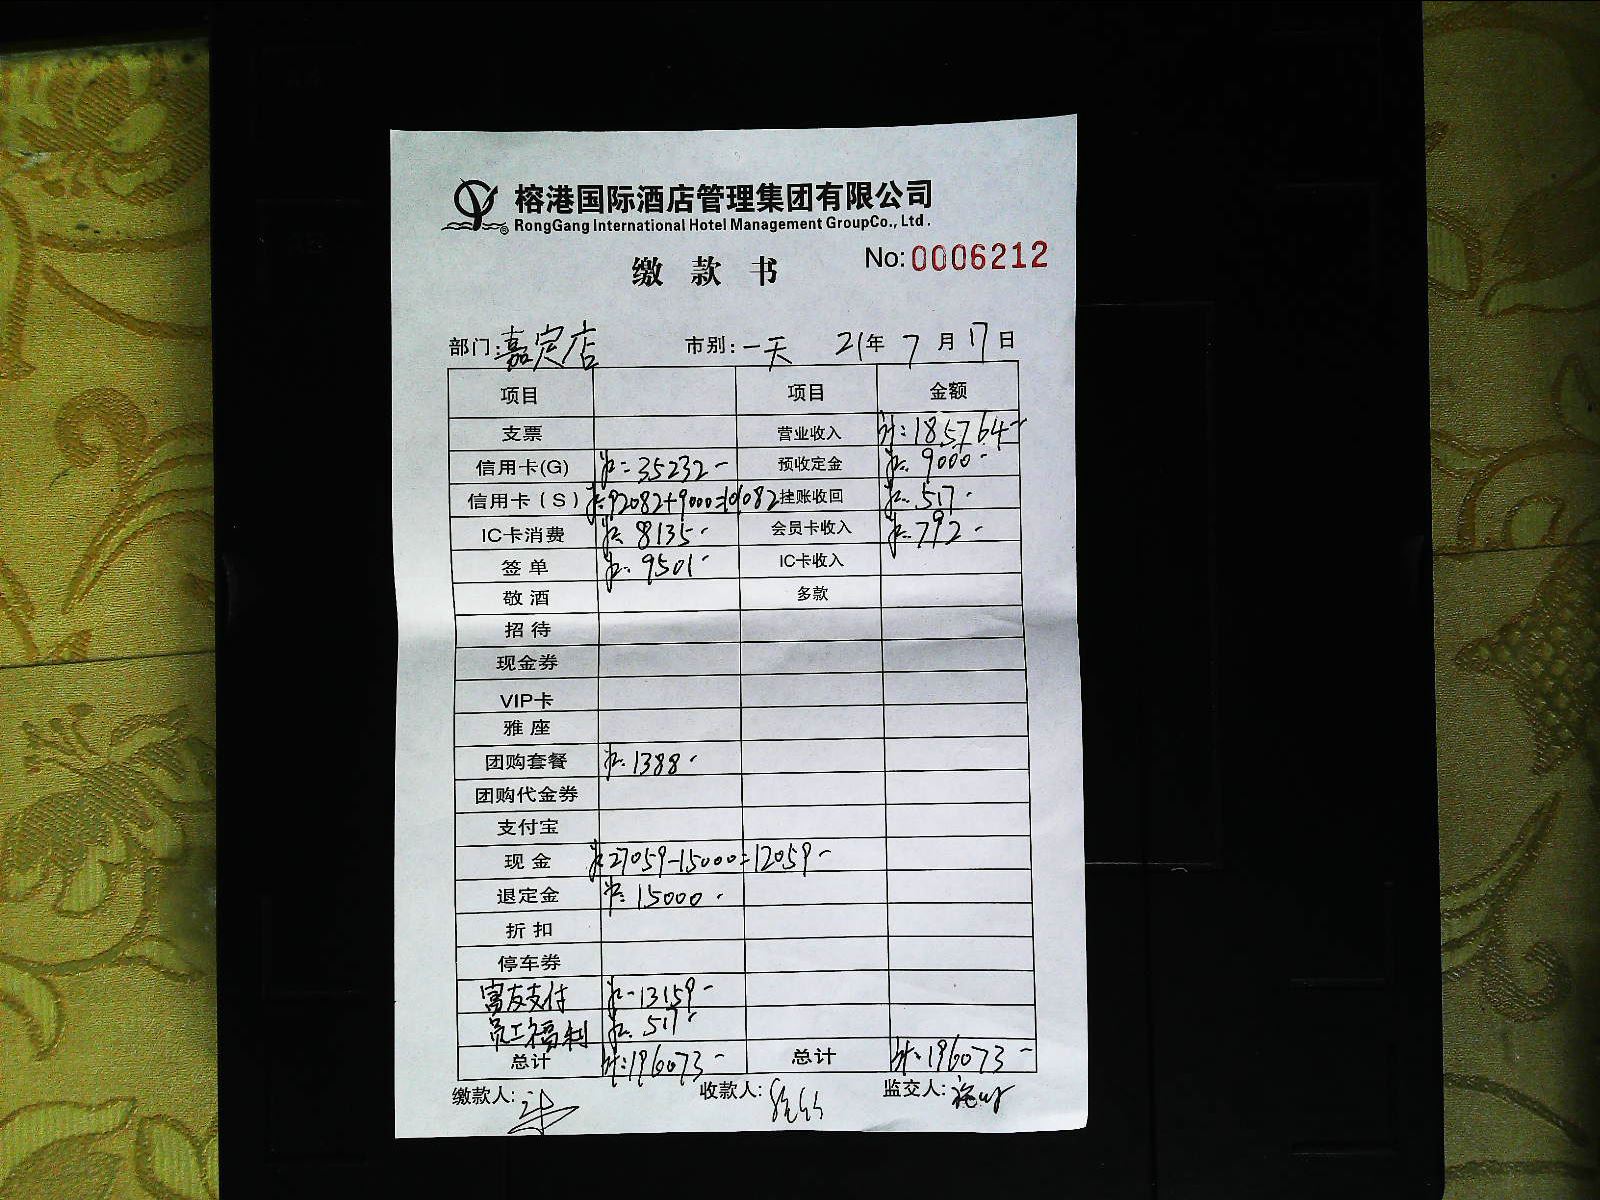 榕港国际酒店管理集团有限公司
RongGang International Hotel Management GroupCo., Ltd.
No:0006212
缴 款 书
部门:嘉定店 市别:一天 21年 7 月 17 日
项目 项目 金额
支票 营业收入 计:185764-
信用卡(G) 35232- 预收定金 9000-
信用卡(S) 92082+9000=101082 挂账收回 517-
IC卡消费 8135- 会员卡收入 792-
签 单 9501- IC卡收入
敬 酒 多款
招 待
现金券
VIP卡
雅 座
团购套餐 1388-
团购代金券
支付宝
现 金 27059-15000=12059-
退定金 15000-
折 扣
停车券
富友支付 13159-
员工福利 517-
总计 计:196073- 总计 计:196073-
缴款人: 收款人: 监交人: